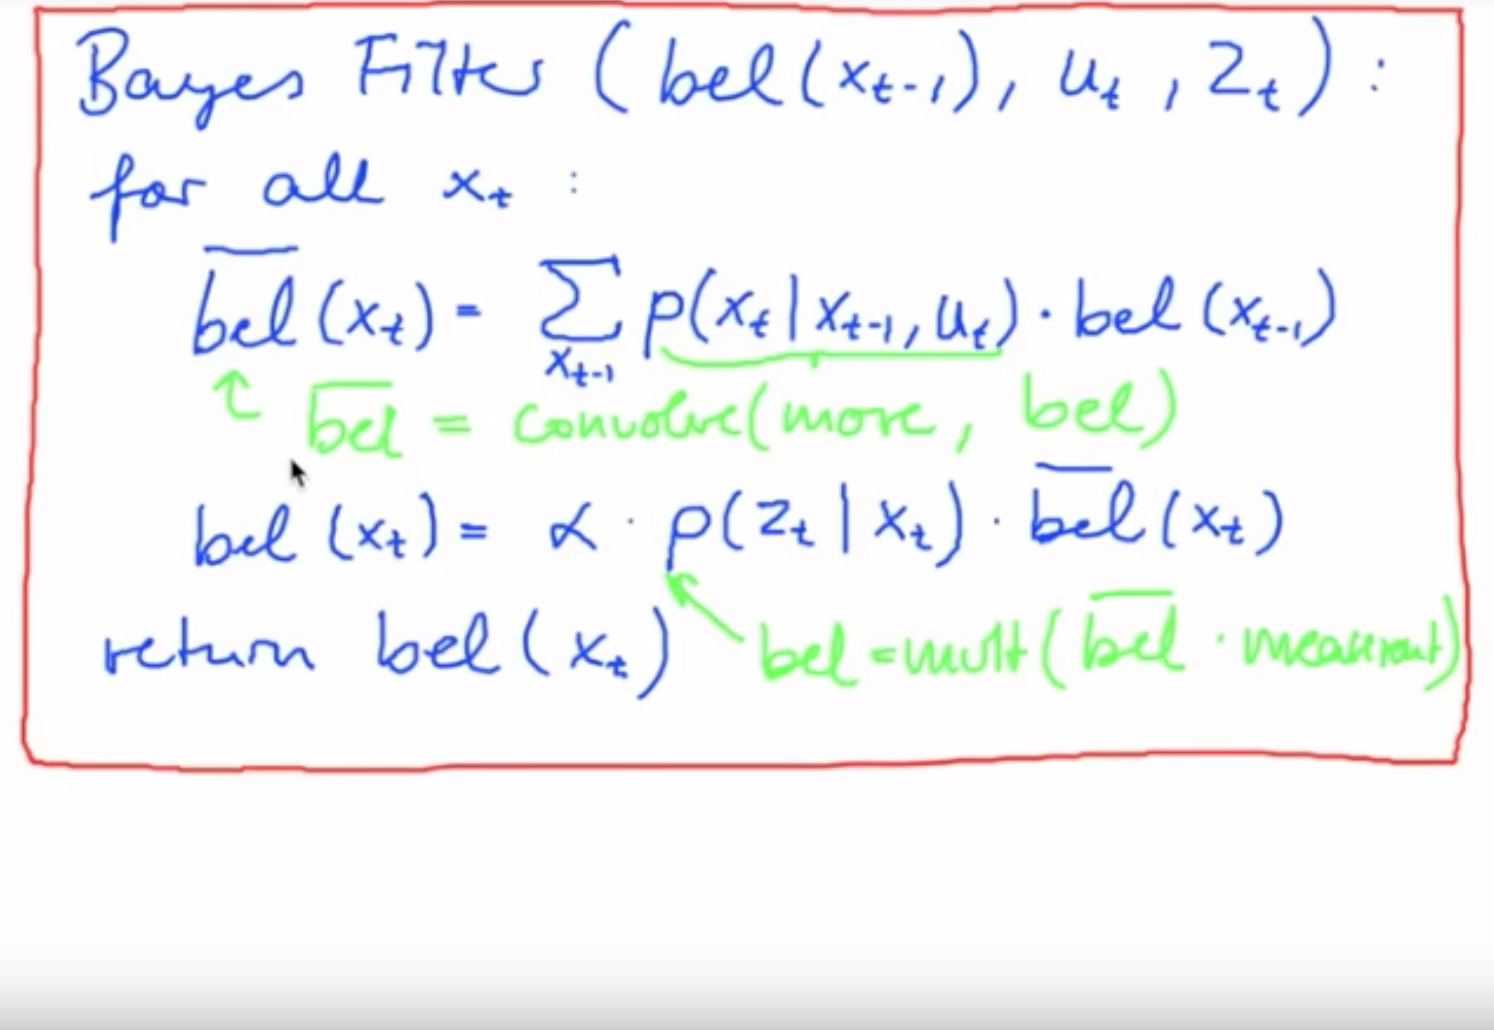 Bayes Filter (bel(x_{t-1}), u_t, z_t):
for all x_t:
\overline{bel}(x_t) = \sum_{x_{t-1}} p(x_t | x_{t-1}, u_t) · bel(x_{t-1})
\overline{bel} = convolve(move, bel)
bel(x_t) = α · p(z_t | x_t) · \overline{bel}(x_t)
return bel(x_t)
bel = mult(\overline{bel} · )